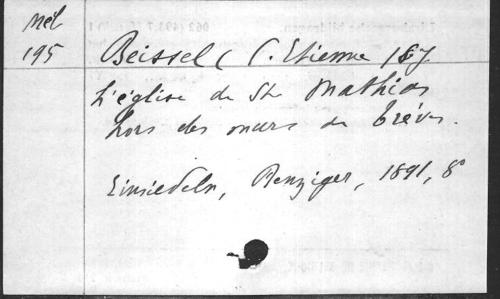 Mél
195
Beissel ( S. Etienne 187
L'église de St Mathias
hors des murs de Trèves.
Einsiedeln, Benziger, 1891, 8°